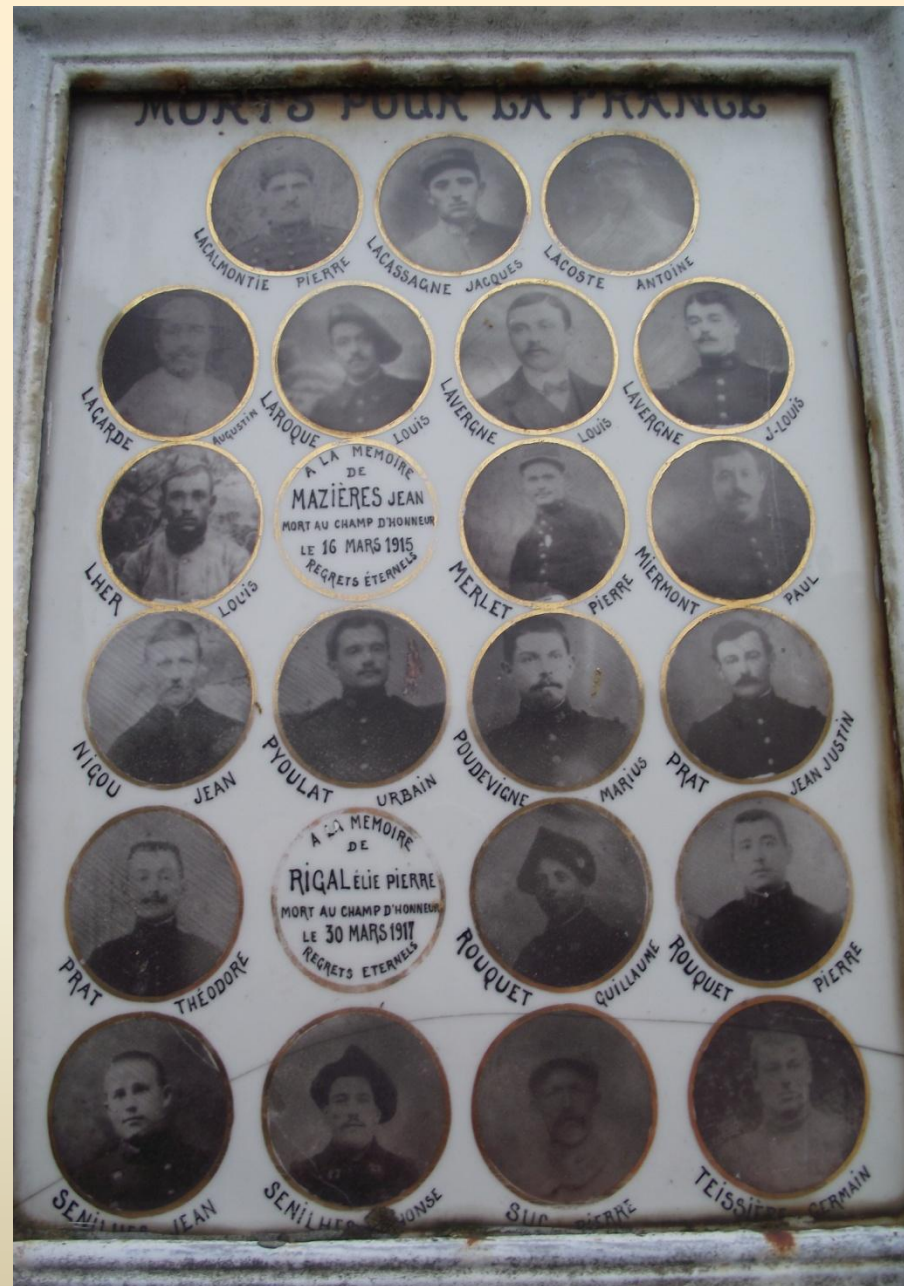 MORTS POUR LA FRANCE
LACALMONTIE PIERRE
LACASSAGNE JACQUES
LACOSTE ANTOINE
LAGARDE AUGUSTIN
LAROQUE LOUIS
LAVERGNE LOUIS
LAVERGNE J-LOUIS
LHER LOUIS
A LA MEMOIRE
DE
MAZIÈRES JEAN
MORT AU CHAMP D'HONNEUR
LE 16 MARS 1915
REGRETS ÉTERNELS
MERLET PIERRE
MIERMONT PAUL
NIGOU JEAN
PYOULAT URBAIN
POUDEVIGNE MARIUS
PRAT JEAN JUSTIN
PRAT THÉODORE
A LA MEMOIRE
DE
RIGAL ÉLIE PIERRE
MORT AU CHAMP D'HONNEUR
LE 30 MARS 1917
REGRETS ETERNELS
ROUQUET GUILLAUME
ROUQUET PIERRE
SENILHES JEAN
SENILHES
SUC PIERRE
TEISSIÈRE GERMAIN